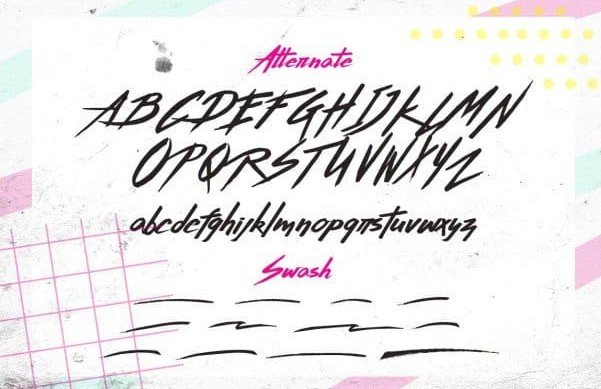 Alternate
ABCDEFGHIJKLMN
OPQRSTUVWXYZ
abcdefghijklmnopqrstuvwxyz
Swash